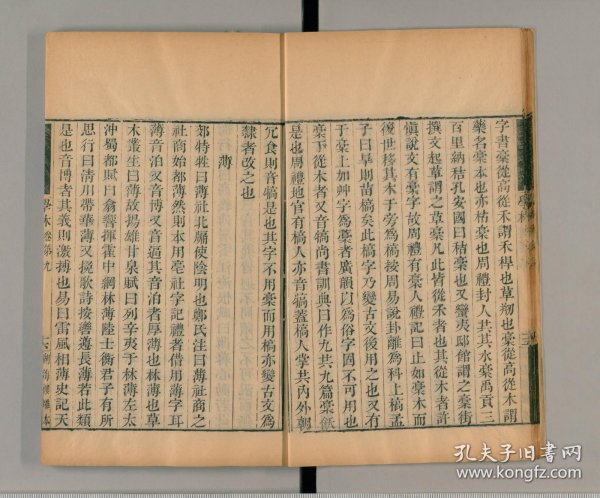 字書稾從高從禾謂禾稈也草芻也稾從高從木謂
藥名稾本也亦枯稾也周禮封人共其水稾禹貢三
百里納秸孔安國曰秸稾也又蠻夷邸館謂之稾街
撰文起草謂之草稾凡此皆從禾者也其從木者許
愼說文有稾字故周禮有稾人禮記曰止如稾木而
後世移其木于旁爲槁按周易說卦離爲科上槁孟
子曰旱則苗槁矣此槁字乃變古文後用之也又有
于稾上加艸字爲藁者廣韻以爲俗字固不可用也
稾下從木者又音犒尚書訓典曰作九共九篇稾飫
是也周禮地官有槁人亦音犒蓋槁人掌共內外朝
宂食則音犒是也其字不用稾而用槁亦變古文爲
隸者改之也
薄
郊特牲曰薄社北牖使陰明也鄭氏注曰薄社商之
社商始都薄然則本用亳社字記禮者借用薄字耳
薄音泊又音博又音逼其音泊者厚薄也林薄也草
木叢生曰薄故揚雄甘泉賦曰列辛夷于林薄左太
沖蜀都賦曰翕響揮霍中網林薄陸士衡君子有所
思行曰清川帶華薄又挽歌詩按轡遵長薄若此類
是也音博者其義則激搏也易曰雷風相薄史記天
學林卷第九
孔夫子旧书网
www.kongfz.com